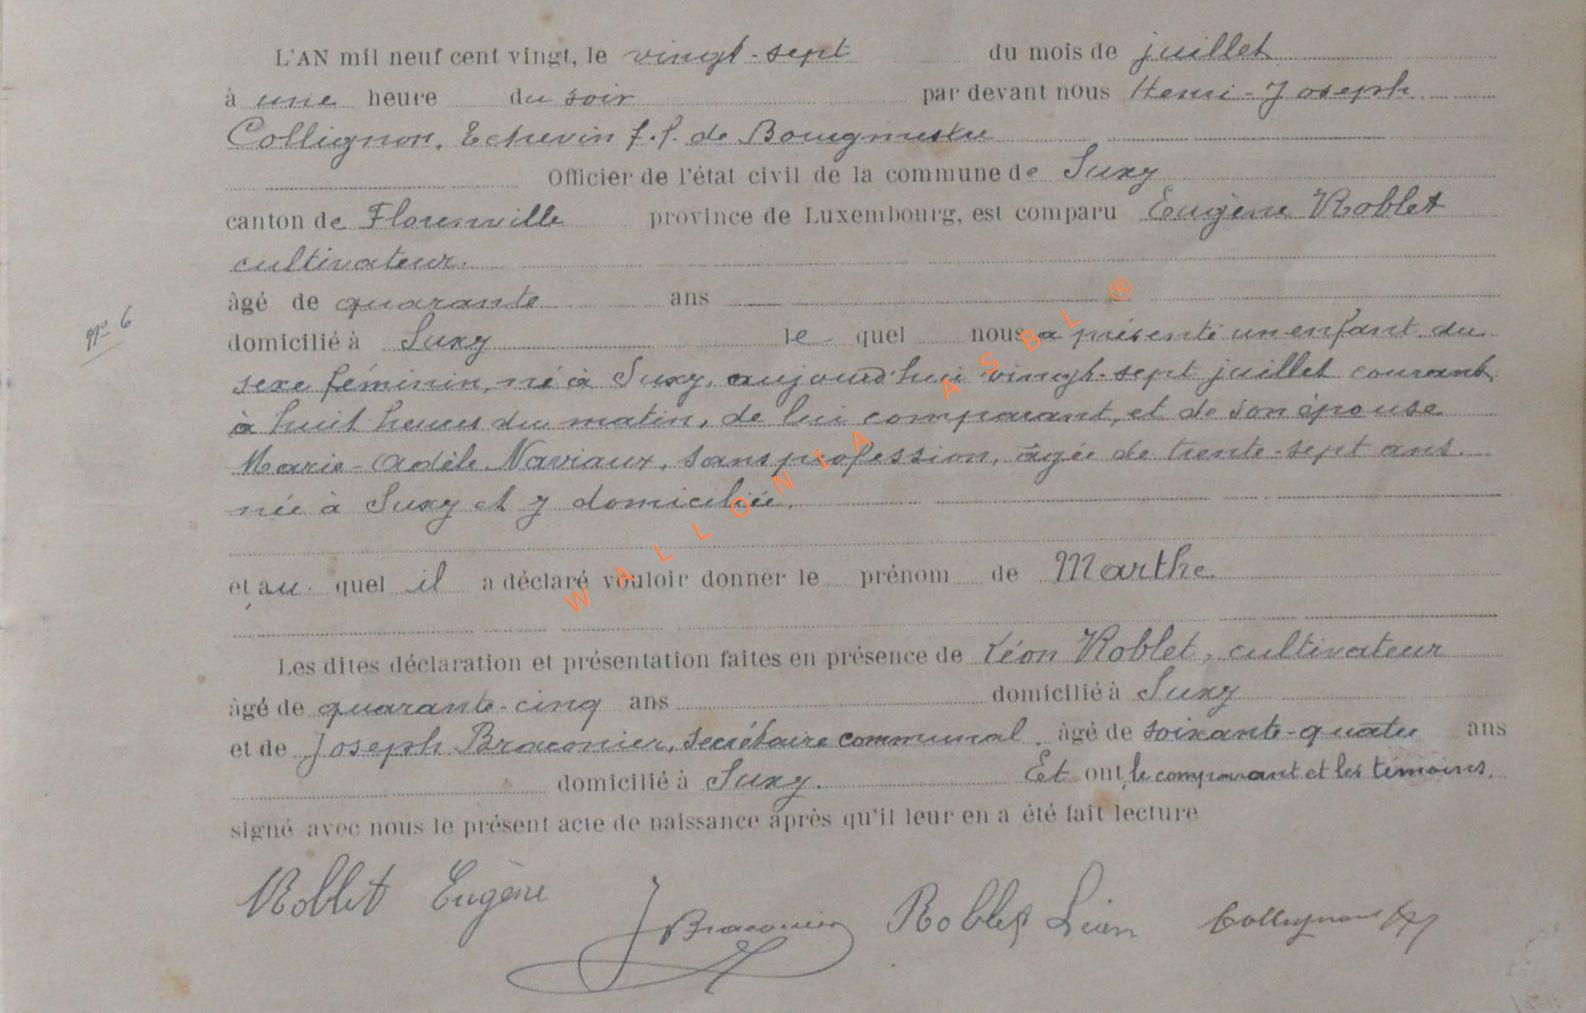 L'AN mil neuf cent vingt, le vingt-sept du mois de juillet
à une heure du soir par devant nous Henri-Joseph
Collignon, Echevin f.f. de Bourgmestre
Officier de l'état civil de la commune de Suxy
canton de Florenville province de Luxembourg, est comparu Eugène Roblet
cultivateur.
âgé de quarante ans
N° 6
domicilié à Suxy le quel nous a présenté un enfant du
sexe féminin, né à Suxy, aujourd'hui vingt-sept juillet courant,
à huit heures du matin, de lui comparant, et de son épouse
Marie-Adèle Naviaux, sans profession, âgée de trente-sept ans.
née à Suxy et y domiciliée.
et au quel il a déclaré vouloir donner le prénom de Marthe
Les dites déclaration et présentation faites en présence de Léon Roblet, cultivateur
âgé de quarante-cinq ans domicilié à Suxy
et de Joseph Braconier, secrétaire communal, âgé de soixante-quatre ans
domicilié à Suxy. Et ont, le comparant et les témoins,
signé avec nous le présent acte de naissance après qu'il leur en a été fait lecture
Roblet Eugène
J Braconier
Roblet Léon
Collignon
WALLONIA ASBL ®